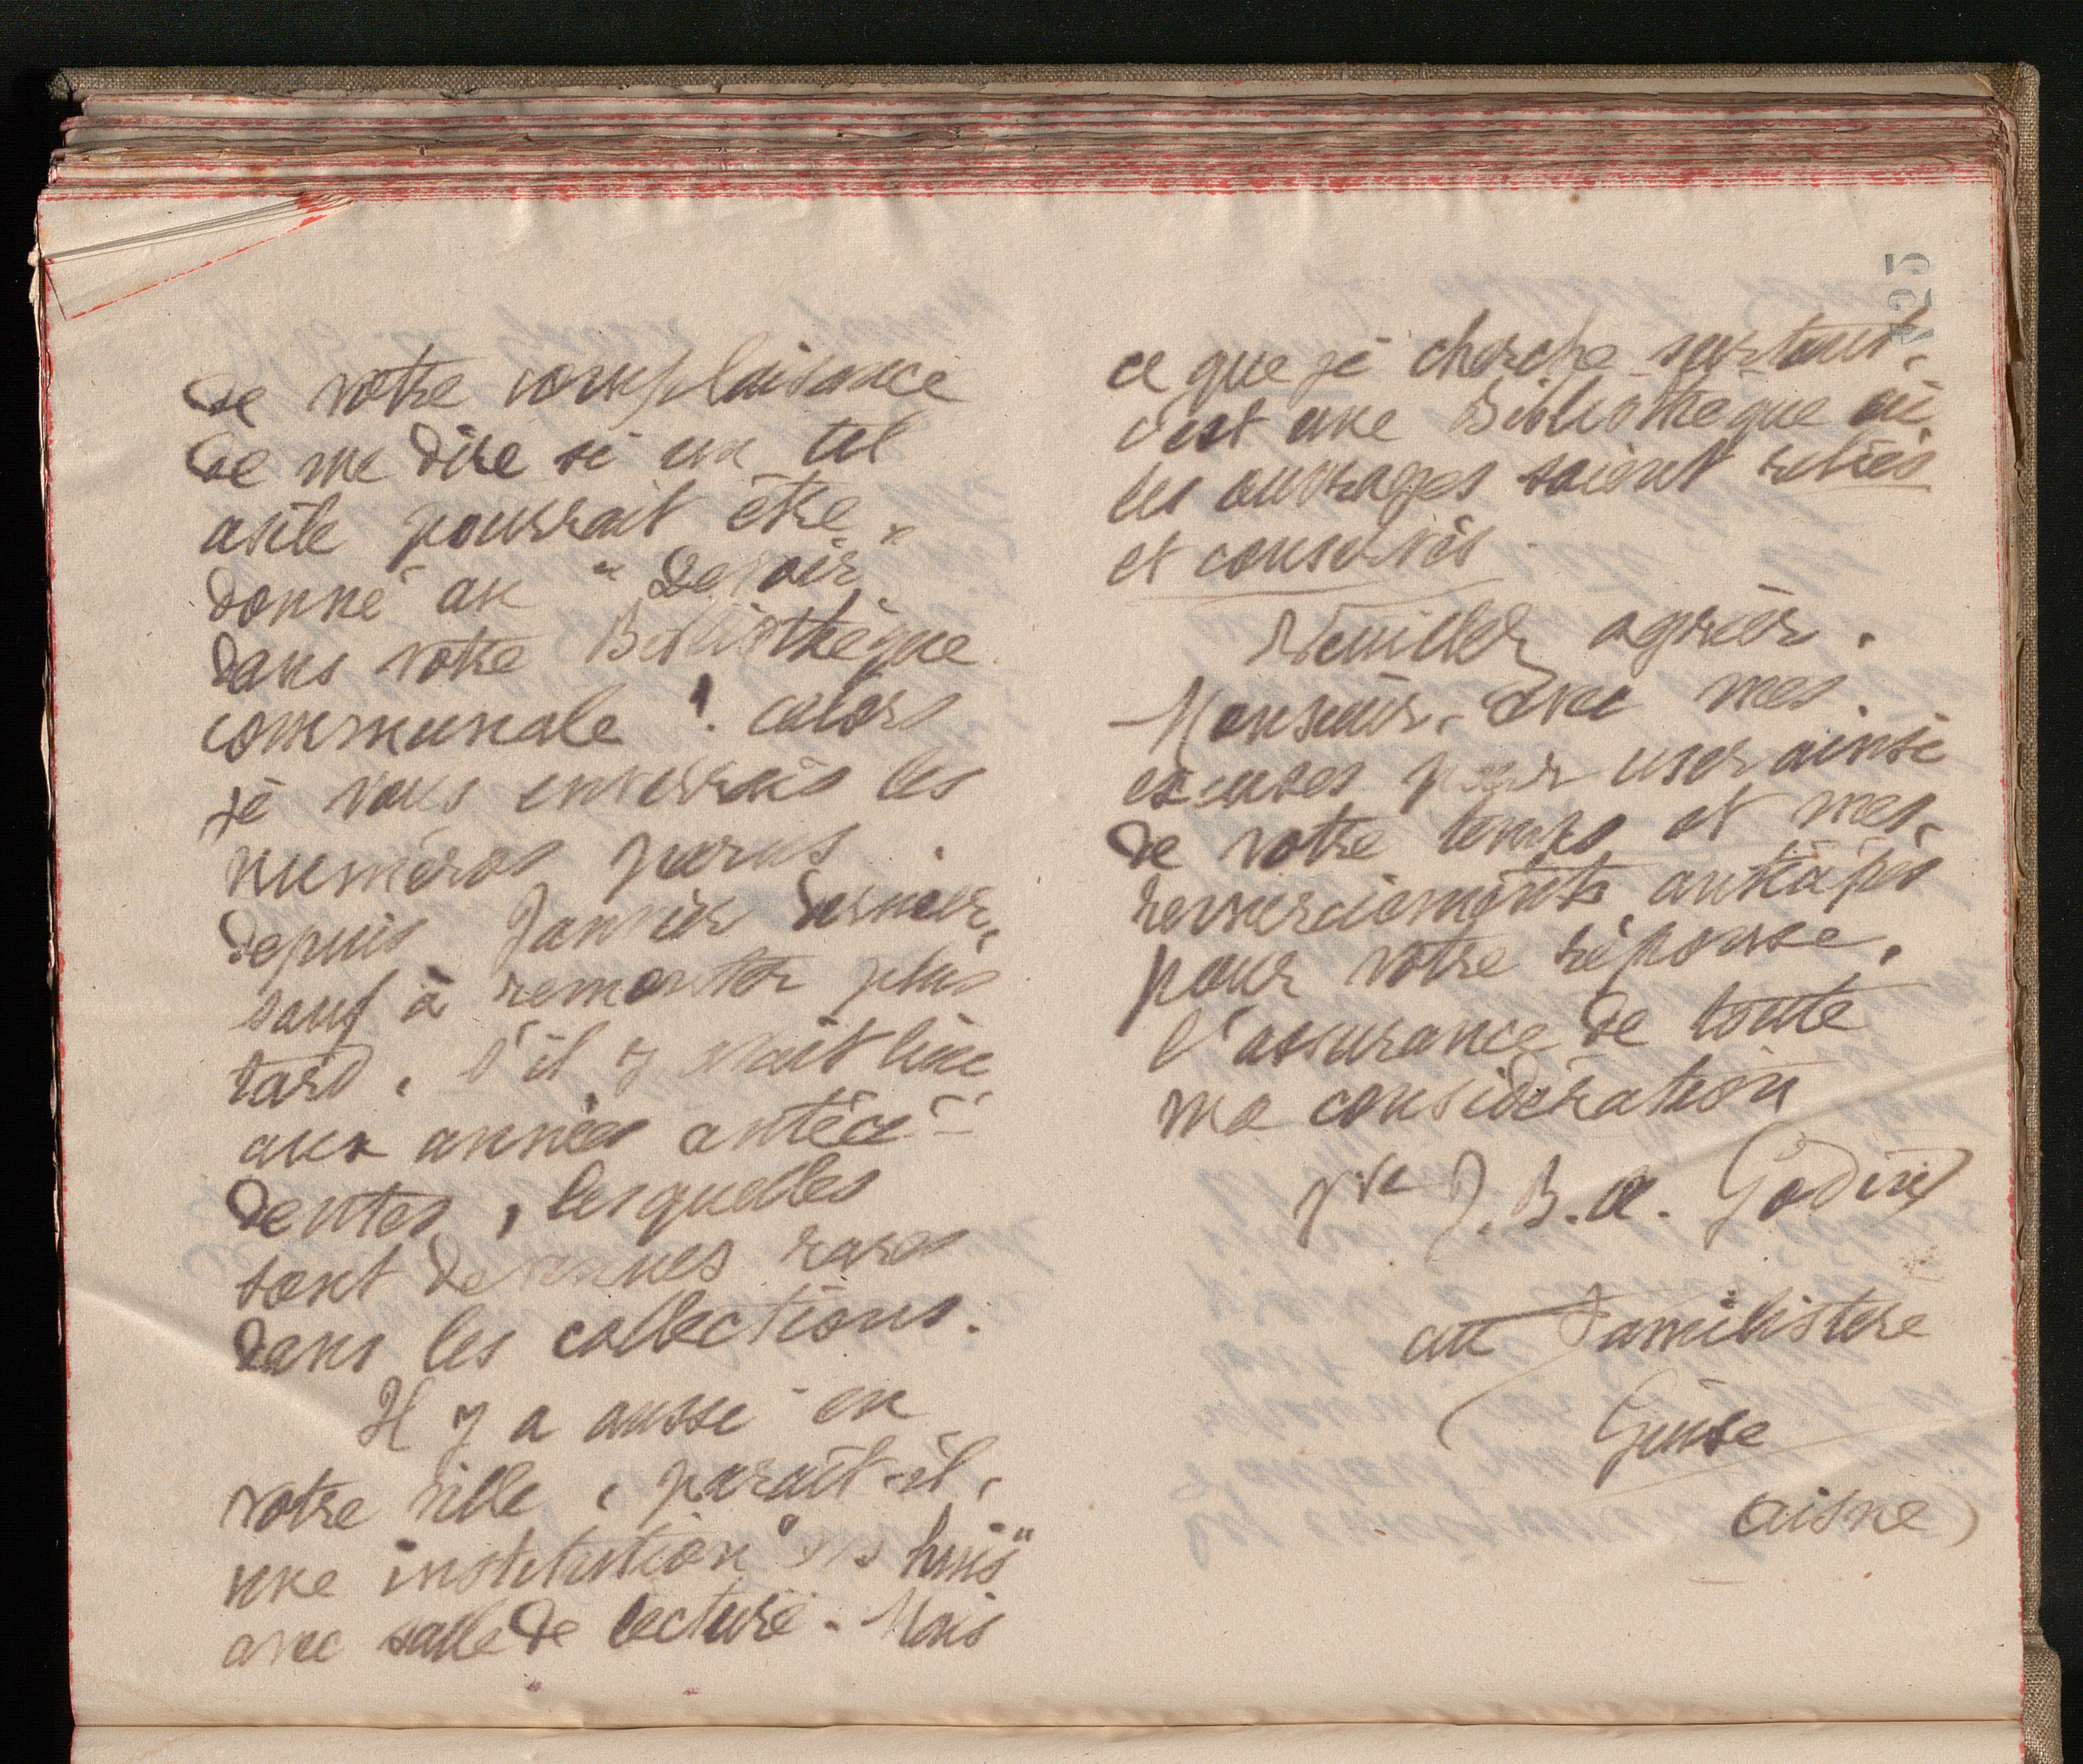 de votre complaisance
de me dire si un tel
asile pourrait être
donné au "Devoir"
dans votre Bibliothèque
communale ? alors
je vous enverrais les
numéros parus
depuis Janvier dernier,
sauf à remonter plus
tard, s'il y avait lieu
aux années antécé-
dentes, lesquelles
sont devenues rares
dans les collections.
Il y a aussi en
votre ville, paraît-il,
une institution
avec salle de lecture. Mais
ce que je cherche surtout,
c'est une Bibliothèque où
les ouvrages soient reliés
et conservés.
Veuillez agréer,
Monsieur, avec mes
excuses pour user ainsi
de votre temps et mes
remerciements anticipés
pour votre réponse,
l'assurance de toute
ma considération
Vve J. B. A. Godin
au Familistère
Guise
Aisne)